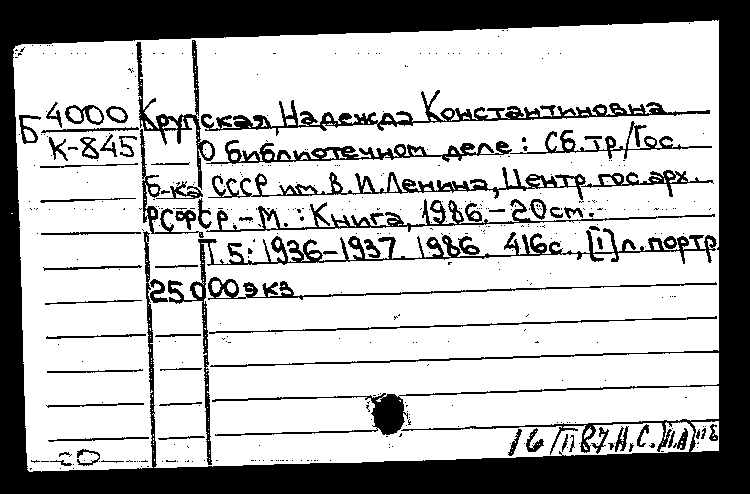 Б 4000 Крупская, Надежда Константиновна
К-845 О библиотечном деле: Сб. тр./Гос.
б-ка СССР им. В. И. Ленина, Центр. гос. арх.
РСФСР. – М.: Книга, 1986. – 20 см.
Т. 5: 1936–1937. 1986. 416 с., [1] л. портр.
25 000 экз.
20